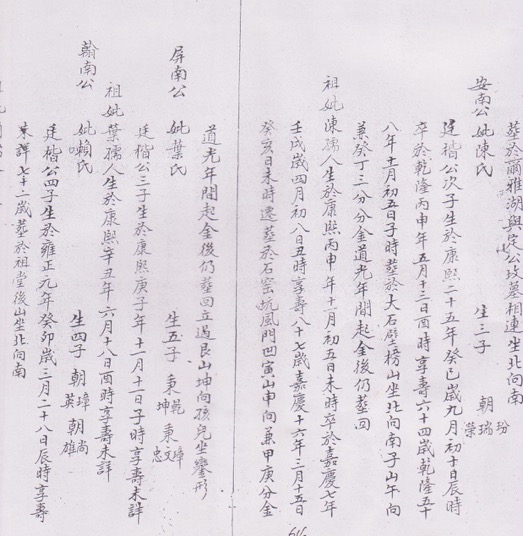 葬於爾雅湖與定公坟墓相連坐北向南
安南公 妣陳氏 生三子 朝 玢 瑞 榮
廷楷公次子生於康熙二十五年癸巳歲九月初十日辰時
卒於乾隆丙申年五月十三日酉時享壽六十四歲乾隆五十
八年十一月初五日子時葬於大石壁榜山坐北向南子山午向
兼癸丁二分分金道光年間起金後仍葬回
祖妣陳孺人生於康熙丙申年十一月初五日未時卒於嘉慶七年
壬戌歲四月初八日丑時享壽八十七歲嘉慶十六年二月十五日
癸亥日未時遷葬於石窑坑風門凹寅山申向兼甲庚分金
道光年間起金後仍葬回立過艮山坤向孩兒坐攣形
屏南公 妣葉氏 生五子 東 乾 坤 東 璋 文 忠
廷楷公三子生於康熙庚子年十一月十一日子時享壽未詳
祖妣葉孺人生於康熙辛丑年六月十八日酉時享壽未詳
翰南公 妣賴氏 生四子 朝 璋 英 朝 尚 雄
廷楷公四子生於雍正元年癸卯歲三月二十八日辰時享壽
未詳七十二歲葬於祖堂後山坐北向南